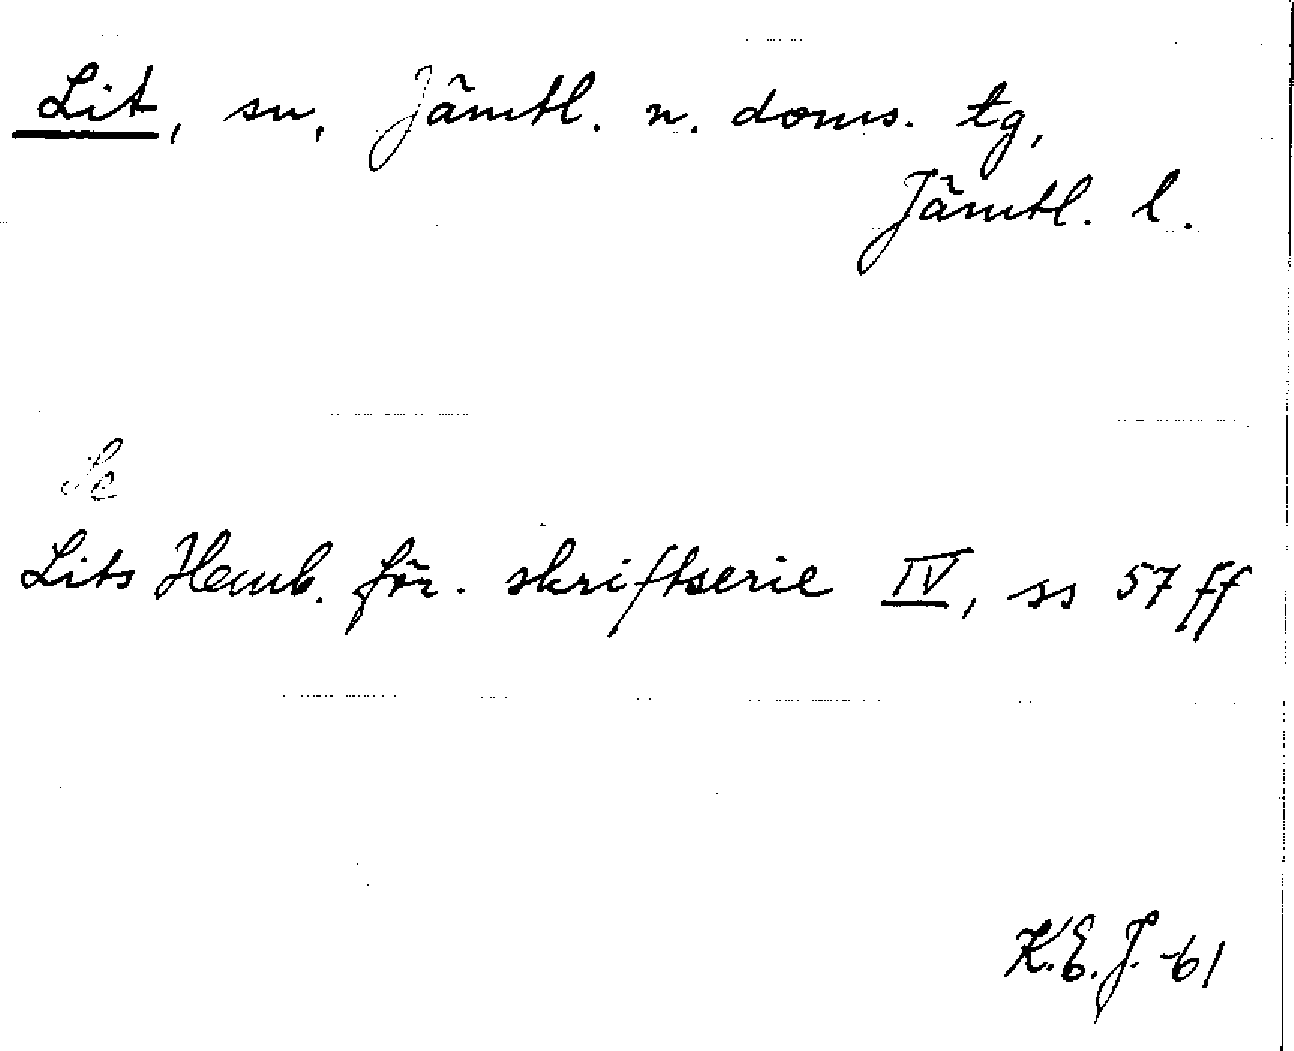 Lit, sn, Jämtl. n. doms. tg,
Jämtl. l.
Se
Lits Hemb. för. skriftserie IV, ss 57 ff
K.E.J. -61